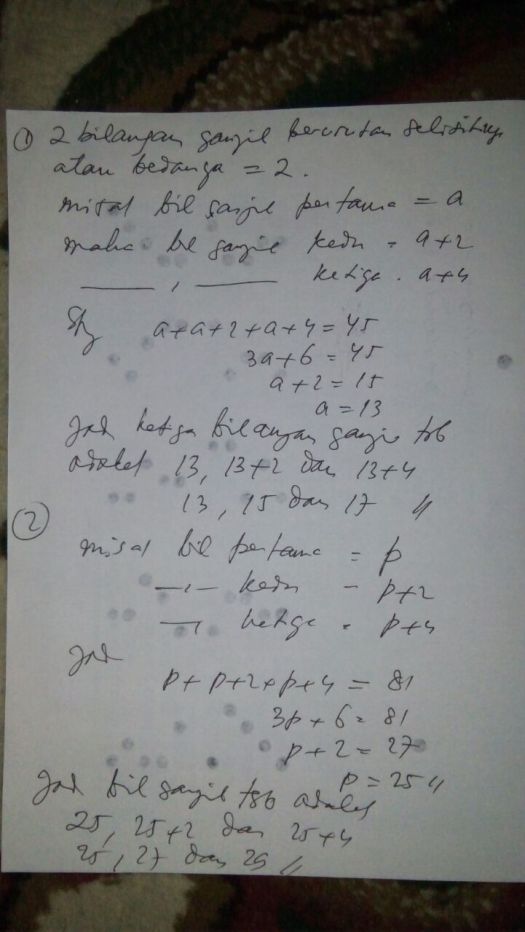 ① 2 bilangan ganjil berurutan selisihnya
atau bedanya = 2.
misal bil ganjil pertama = a
maka bil ganjil kedua = a+2
——— , ——— ketiga = a+4
Shg a+a+2+a+4 = 45
3a+6 = 45
a+2 = 15
a = 13
Jadi ketiga bilangan ganjil tsb
adalah 13, 13+2 dan 13+4
13, 15 dan 17 //
②
misal bil pertama = p
—,— kedua = p+2
—, ketiga = p+4
Jadi
p+p+2+p+4 = 81
3p+6 = 81
p+2 = 27
p = 25 //
Jadi bil ganjil tsb adalah
25, 25+2 dan 25+4
25, 27 dan 29 //